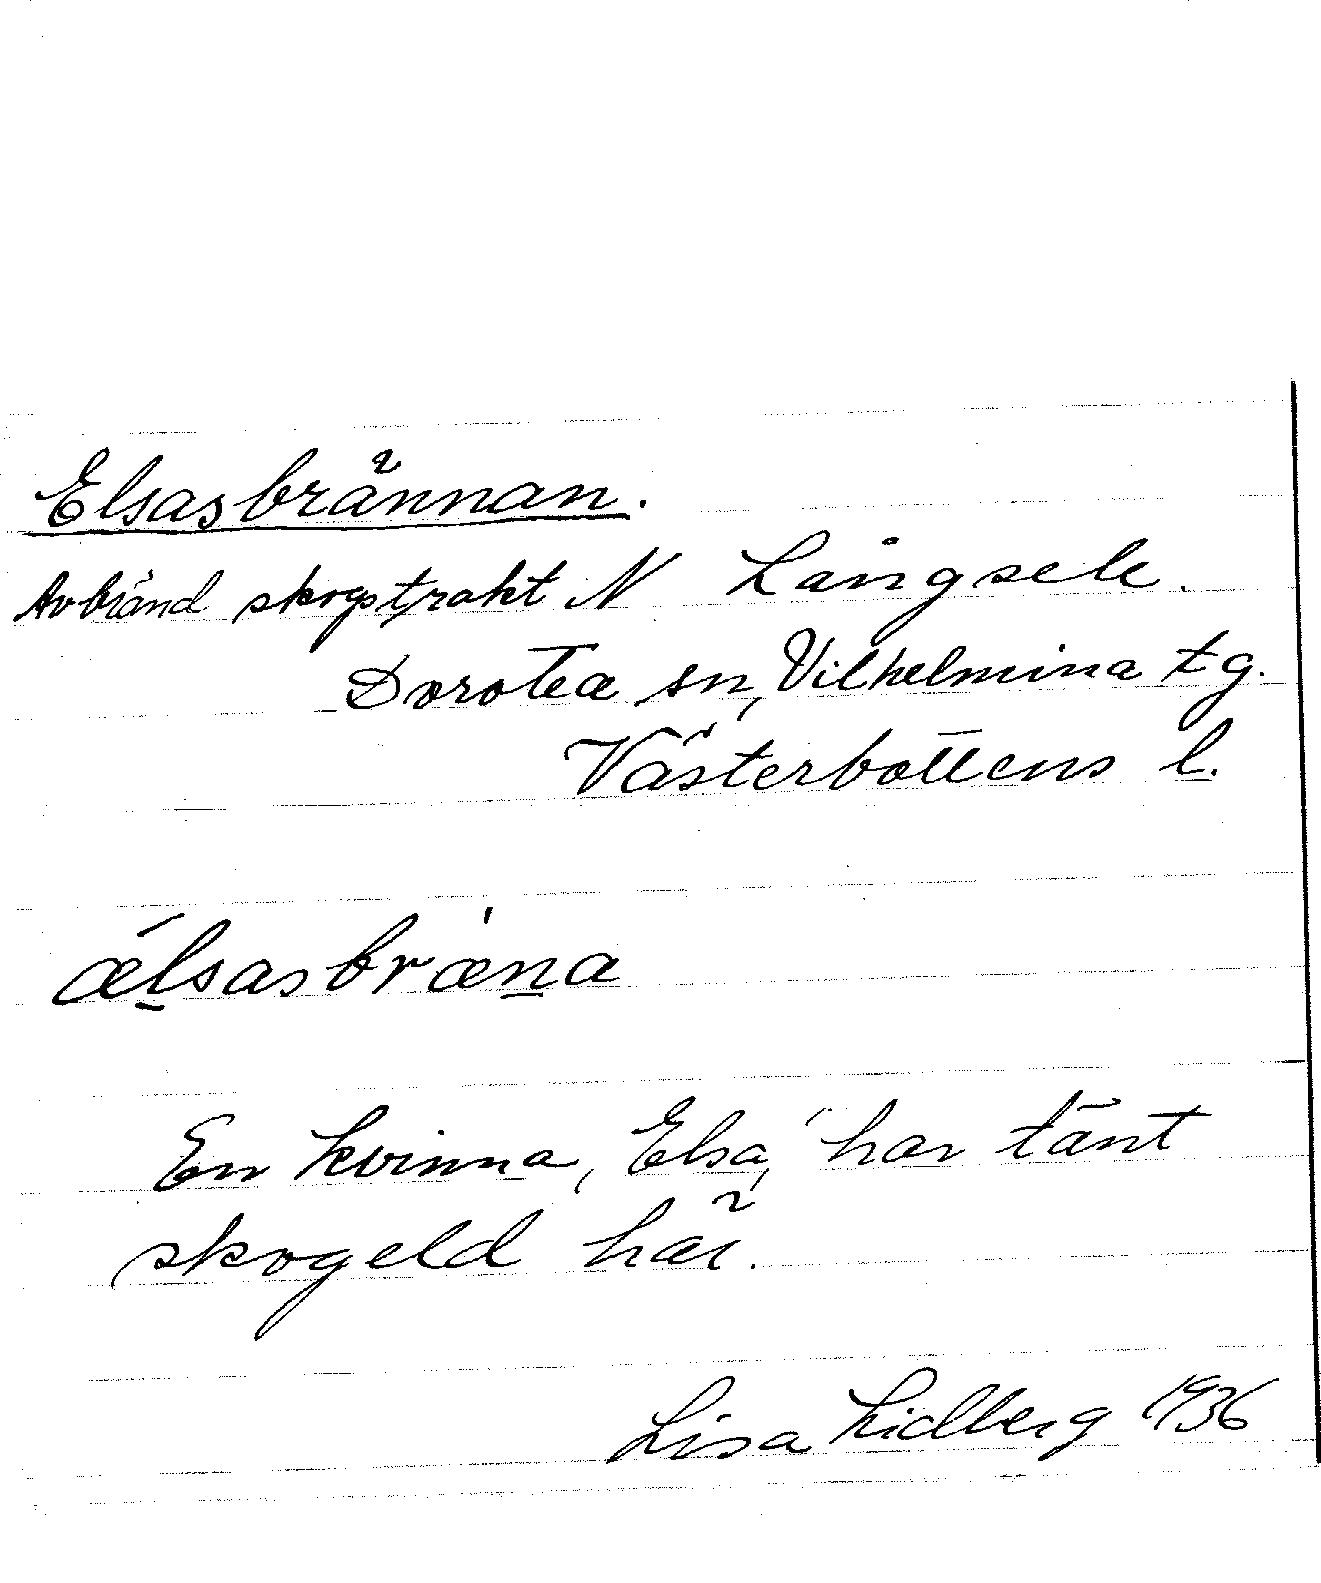 Elsasbrännan.
Avbränd skogstrakt N Långsele.
Dorotea sn, Vilhelmina tg.
Västerbottens l.
ǽlsasbræ̀na
En kvinna, Elsa, har tänt
skogeld här.
Lisa Lidberg 1936